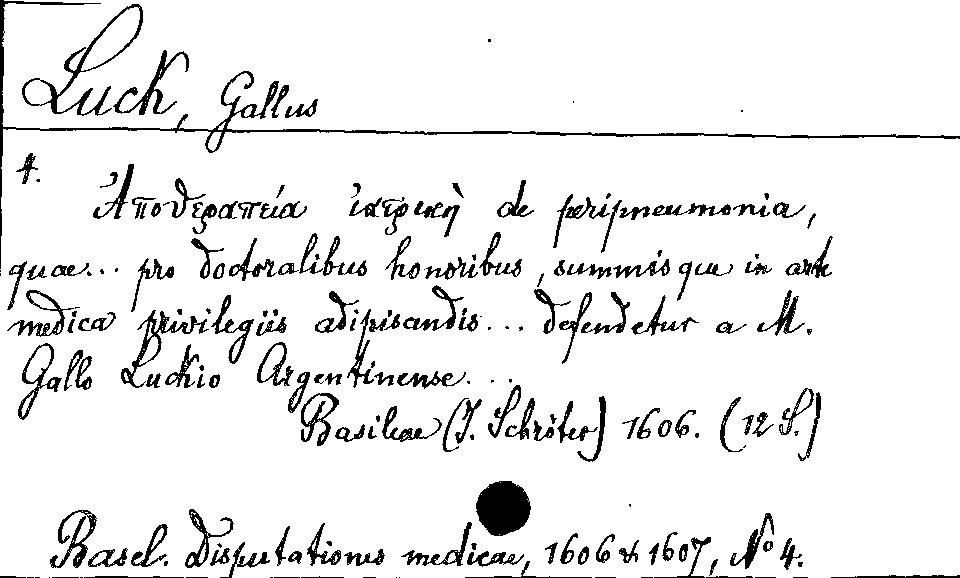 Luck, Gallus
4.
Ἀποθεραπεία ἰατρικὴ de peripneumonia,
quae... pro doctoralibus honoribus, summisque in arte
medica privilegiis adipiscandis... defendetur a M.
Gallo Luckio Argentinense...
Basileae (J. Schröter) 1606. (12 S.)
Basel. Disputationes medicae, 1606 & 1607, No 4.